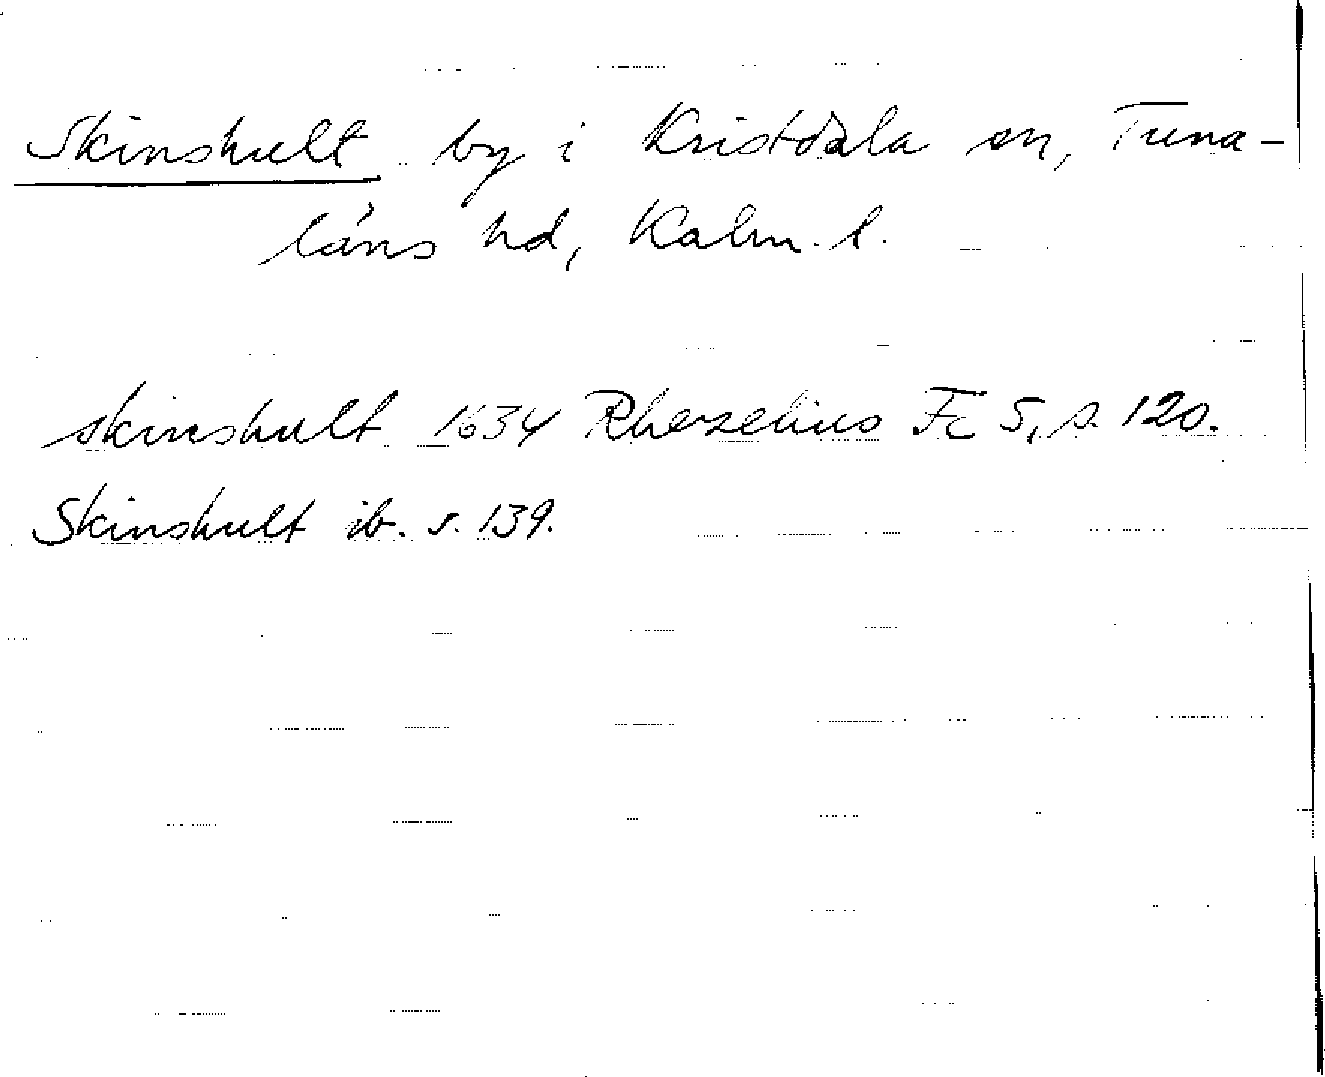 Skinshult by i Kristdala sn, Tuna-
läns hd, Kalm. l.
skinshult 1634 Rhezelius Fc 5, s. 120.
Skinshult ib. s. 139.